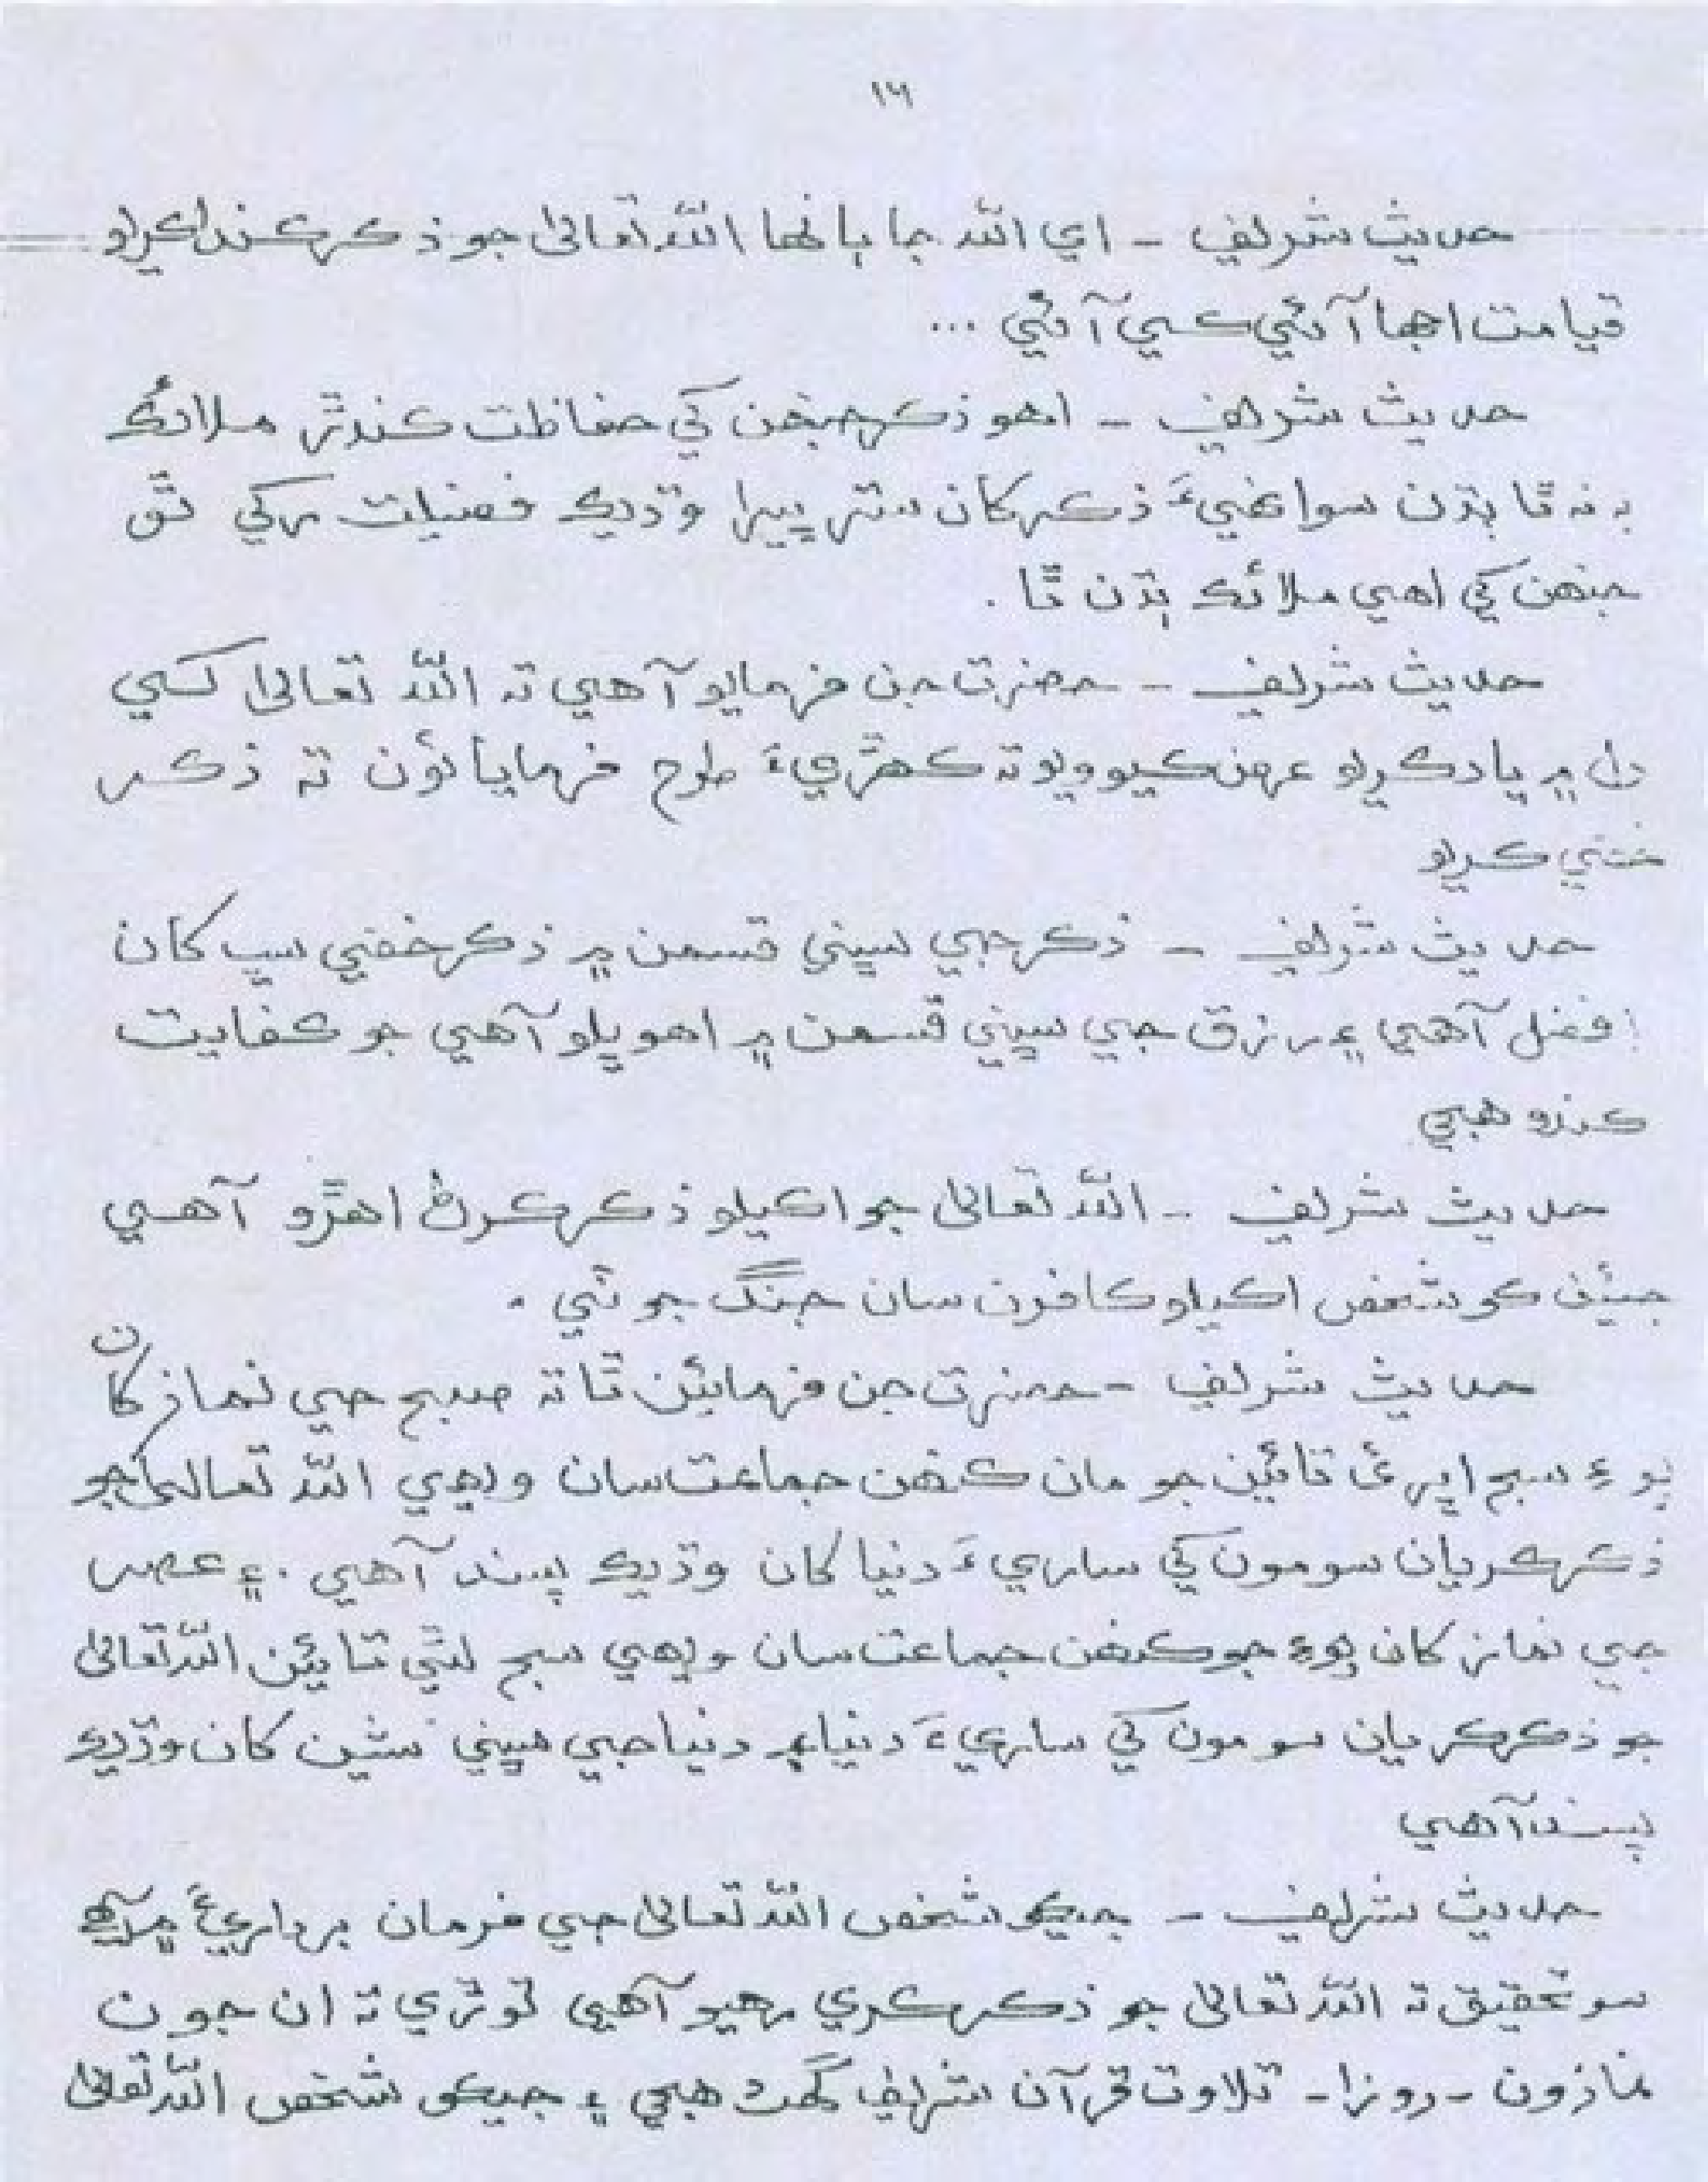 ١٦
حديث شريف - اي الله جا ٻانها الله تعالیٰ جو ذكر ڪندا ڪريو
قيامت اجها آئي ڪي آئي ...
حديث شريف - اهو ذكر جنهن کي حفاظت ڪندڙ ملائڪ
به نه ٿا ٻڌن سو انهيءَ ذڪر کان ستر ڀيرا وڌيڪ فضيلت رکي ٿو
جنهن کي اهي ملائڪ ٻڌن ٿا .
حديث شريف - حضرت جن فرمايو آهي ته الله تعالیٰ کي
دل ۾ ياد ڪريو عرض ڪيو ويو ته ڪهڙيءَ طرح فرمايائون ته ذڪر
خفي ڪريو
حديث شريف - ذڪر جي سڀني قسمن ۾ ذڪر خفي سڀ کان
افضل آهي ۽ رزق جي سڀني قسمن ۾ اهو ڀلو آهي جو ڪفايت
ڪندو هجي
حديث شريف - الله تعالیٰ جو اڪيلو ذڪر ڪرڻ اهڙو آهي
جيئن ڪو شخص اڪيلو ڪافرن سان جنگ جوٽي .
حديث شريف - حضرت جن فرمائين ٿا ته صبح جي نماز کان
پوءِ سج اڀرڻ تائين جو مان ڪنهن جماعت سان ويهي الله تعالیٰ جو
ذڪر ڪريان سو مون کي ساريءَ دنيا کان وڌيڪ پسند آهي . ۽ عصر
جي نماز کان پوءِ جو ڪنهن جماعت سان ويهي سج لٿي تائين الله تعالیٰ
جو ذڪر ڪريان سو مون کي ساريءَ دنيا ۾ دنيا جي سڀني شين کان وڌيڪ
پسند آهي
حديث شريف - جيڪو شخص الله تعالیٰ جي فرمان برداريءَ ۾ آهي
سو تحقيق ته الله تعالیٰ جو ذڪر ڪري رهيو آهي توڙي ته ان جون
نمازون - روزا - تلاوت قرآن شريف گهٽ هجي ۽ جيڪو شخص الله تعالیٰ